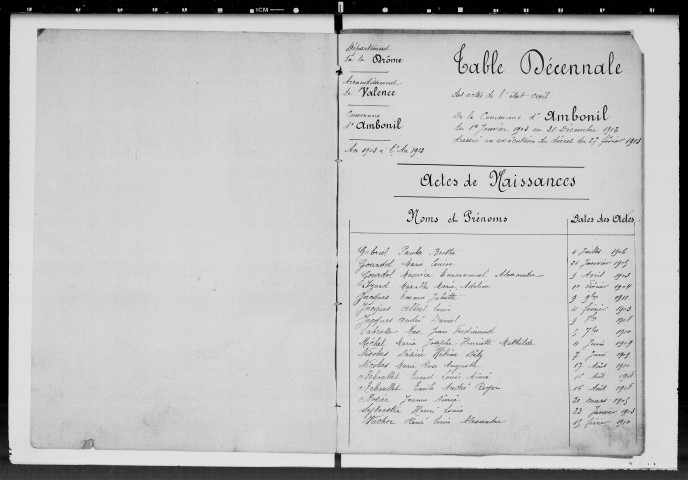 Département
de la Drôme
Arrondissement
de Valence
Commune
d'Ambonil
An 1903 à l'An 1912
Table Décennale
des actes de l'état civil
De la Commune d'Ambonil
du 1er Janvier 1903 au 31 Décembre 1912
dressée en exécution du Décret du 27 février 1913
Actes de Naissances
Noms et Prénoms Dates des Actes
Gabriel Paula Berthe 4 Juillet 1906
Gourdol Marie Louise Janvier 1905
Gourdol Maurice Emmanuel Alexandre 9 Avril 1903
Marcelle Marie Adeline Février 1904
Jacques Juliette 9 9bre 1911
Jacques Louis 4 février 1903
Jacques André Daniel 9
Max Jean Ferdinand 5 7bre 1910
Michel Maria Josephe Henriette Mathilde 4 Juin 1909
Nicolas Désiré 7 Juin 1909
Nicolas Marie Rose Augusta 17 Août 1910
Ernest Louis Aimé 15 Août 1906
Emile André Roger 16 Août 1906
Jeanne 20 mars 1905
Sylvestre Henri Louis 23 Janvier 1903
René Louis Alexandre 15 février 1910